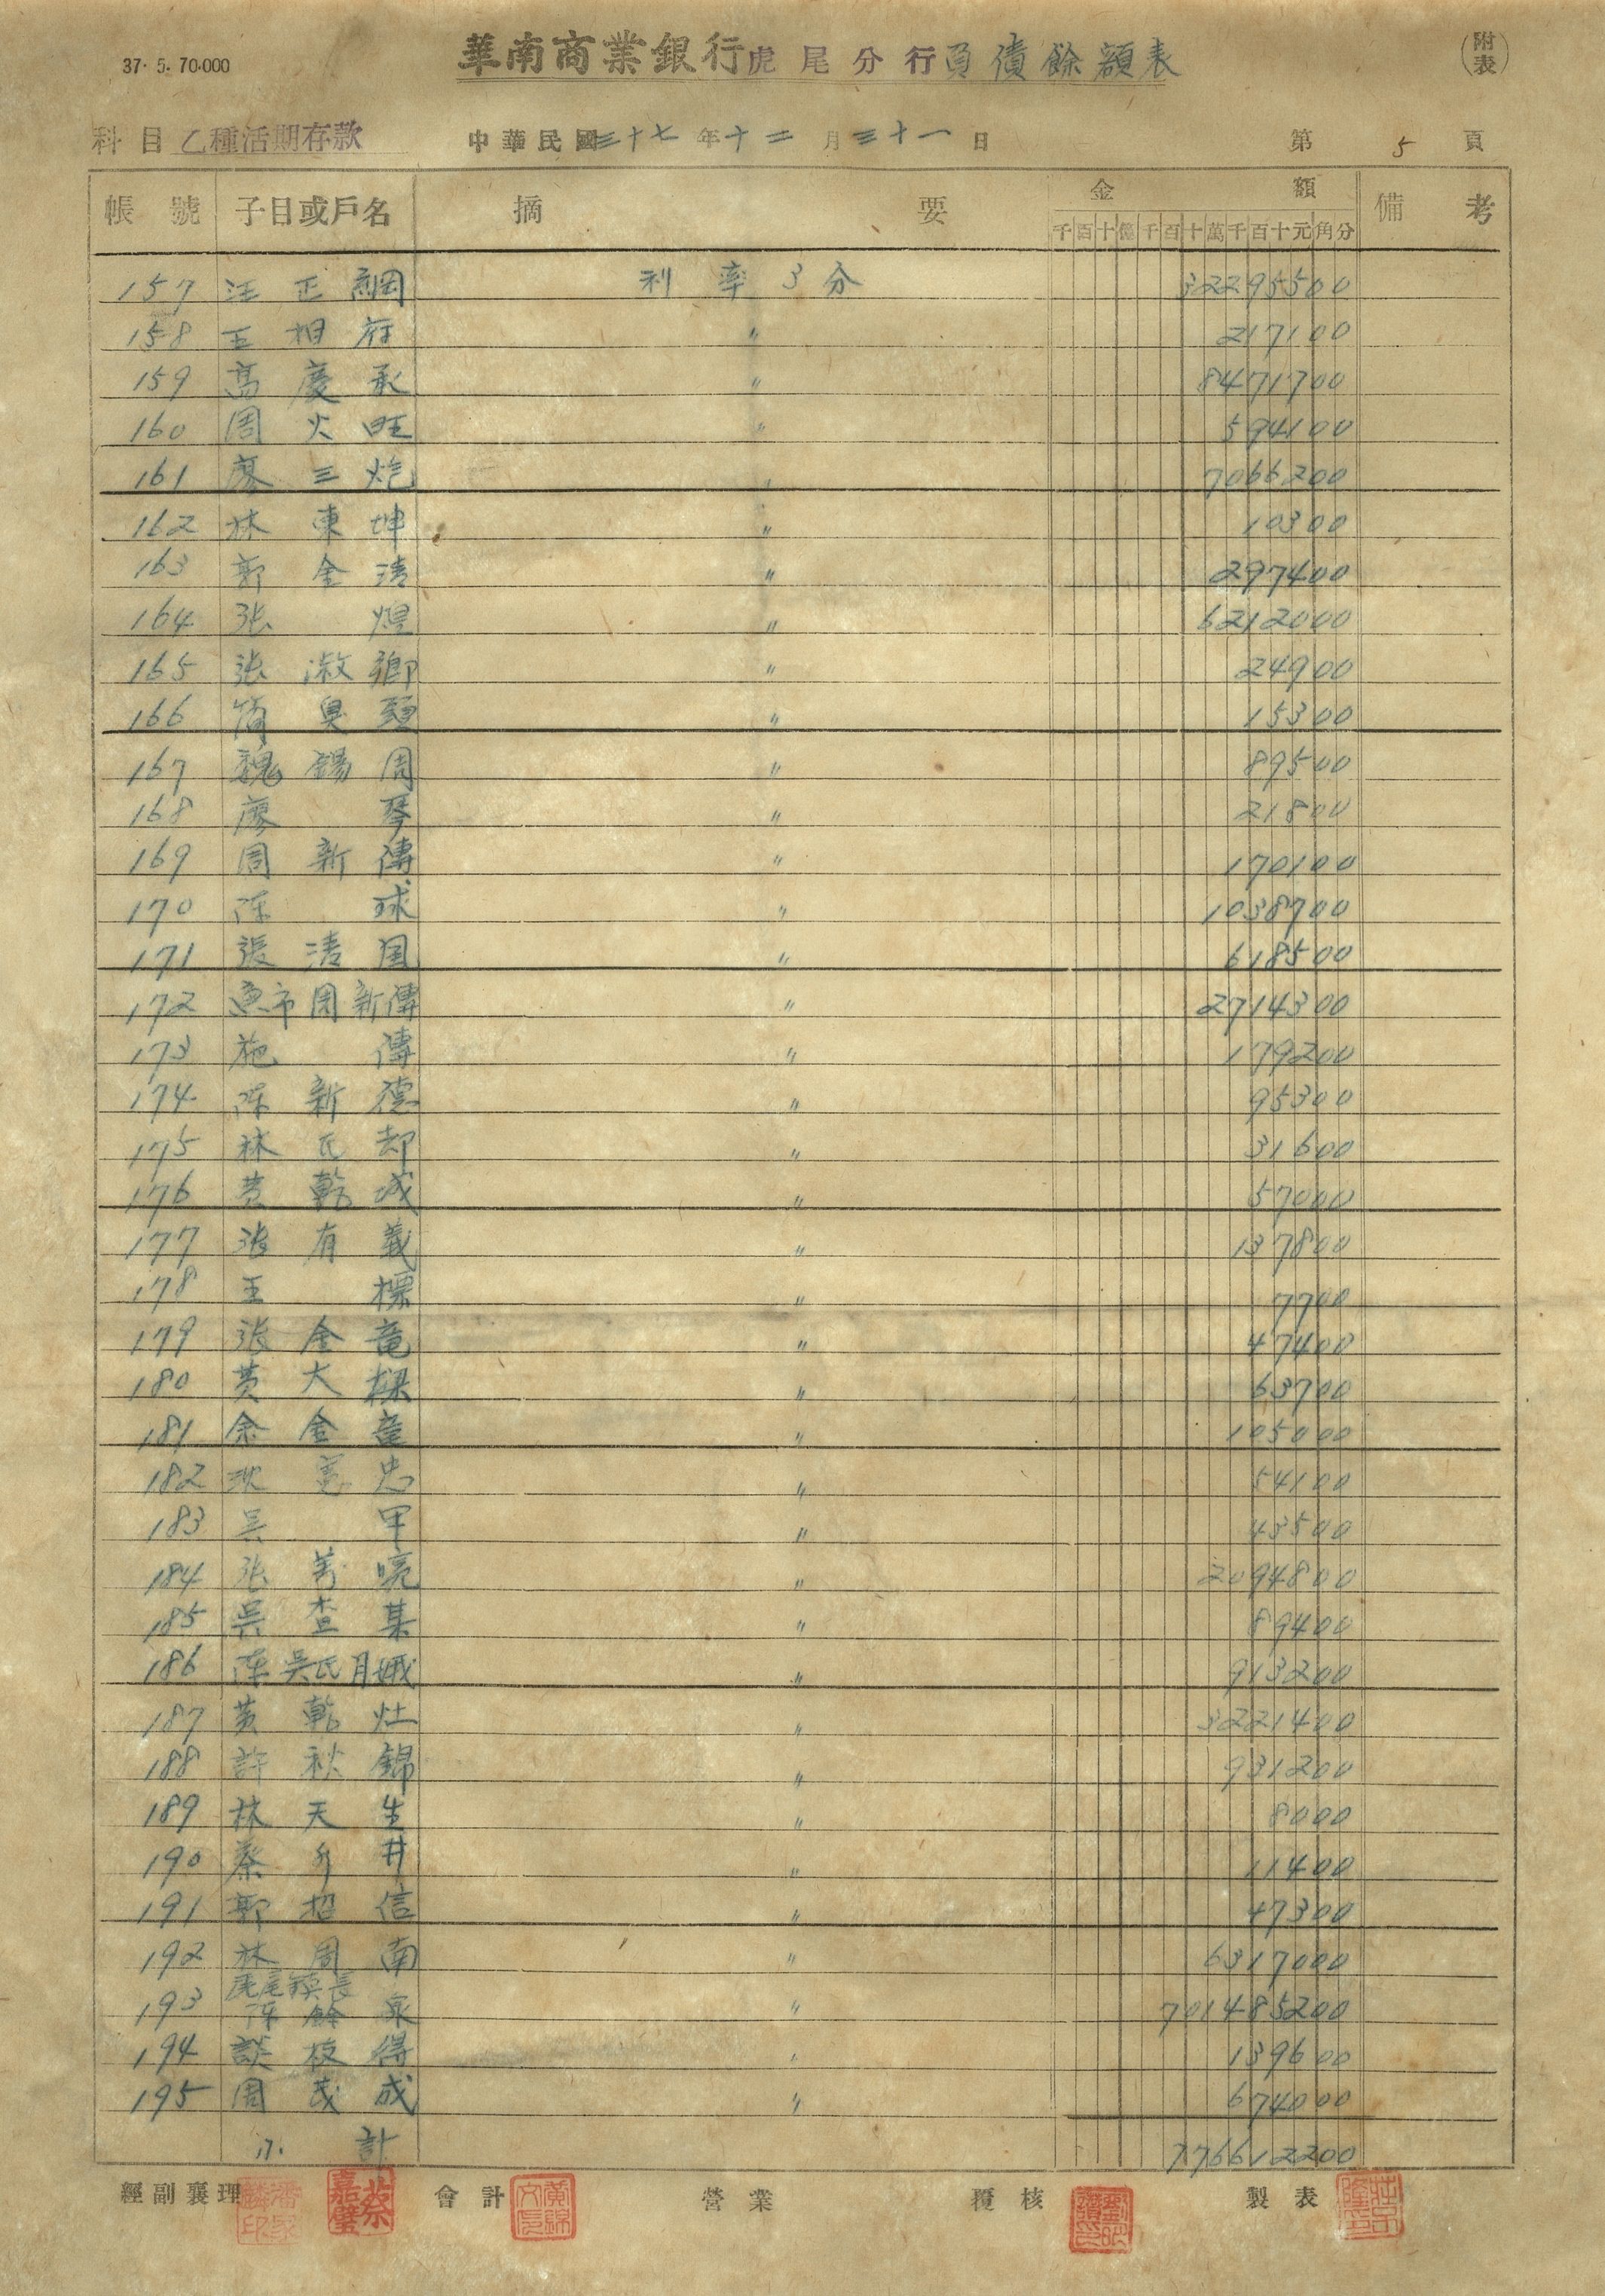 37· 5. 70·000
華南商業銀行虎尾分行負債餘額表
(附表)
科目 乙種活期存款 中華民國三十七年十二月三十一日 第5頁
帳號 子目或戶名 摘要 金額 備考
千百十億千百十萬千百十元角分
157 汪正綱 利率3分 32295500
158 王相府 〃 217100
159 高慶承 〃 8471700
160 周火旺 〃 594100
161 廖三炮 〃 7066200
162 林東坤 〃 10300
163 郭金清 〃 297400
164 張煌 〃 6212000
165 張淑卿 〃 24900
166 簡臭頭 〃 15300
167 魏錫周 〃 89500
168 廖琴 〃 21800
169 周新傳 〃 170100
170 陳球 〃 1038700
171 張清國 〃 618500
172 魚市周新傳 〃 2714300
173 施傳 〃 179200
174 陳新德 〃 95300
175 林氏却 〃 31600
176 黃乾成 〃 57000
177 張有義 〃 137800
178 王標 〃 7700
179 張金竜 〃 47400
180 黃大樑 〃 63700
181 余金竜 〃 105000
182 忠 〃 54100
183 吳甲 〃 43500
184 張芳 〃 2094800
185 吳查某 〃 89400
186 陳吳氏月娥 〃 913200
187 黃乾灶 〃 3221400
188 許秋錦 〃 931200
189 林天生 〃 8000
190 蔡井 〃 11400
191 郭招信 〃 47300
192 林周南 〃 6317000
193 虎尾鎮長 陳餘泉 〃 701485200
194 談枝得 〃 139600
195 周茂成 〃 674000
小計 776612200
經副襄理 會計 營業 覆核 製表
潘家麟印
蔡嘉璧